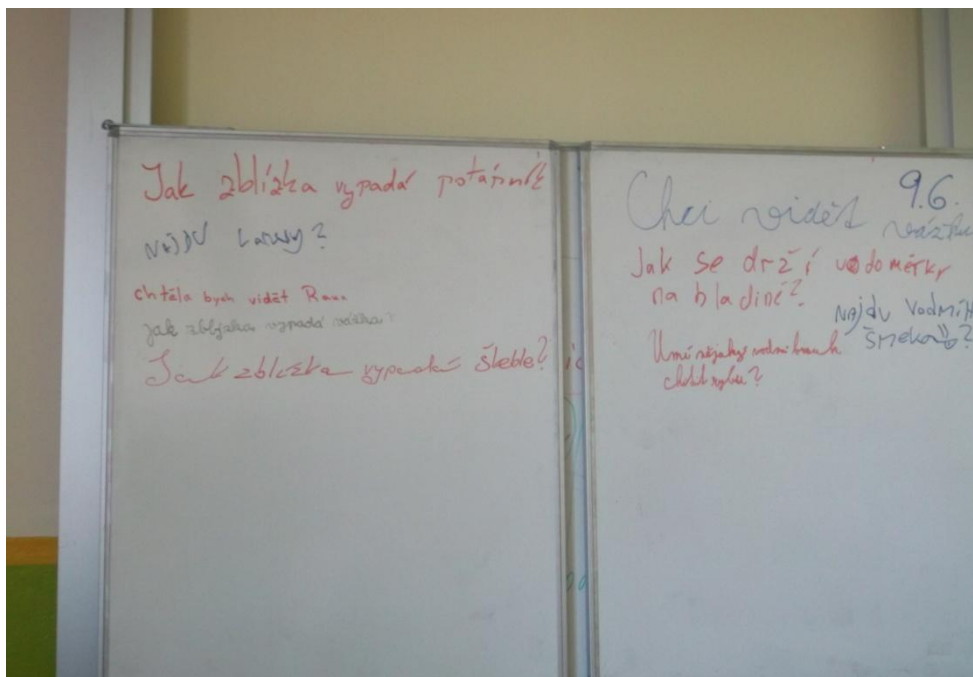 Jak zblízka vypadá potápník
Najdu Larvy?
chtěla bych vidět
Jak zblízka vypadá vážka?
Jak zblízka vypadá šleble?
9.6.
Chci vidět vážku
Jak se drží vodoměrky
na hladině?
Najdu Vodmíh
Umí nějaký vodní brouk
chytit rybu?